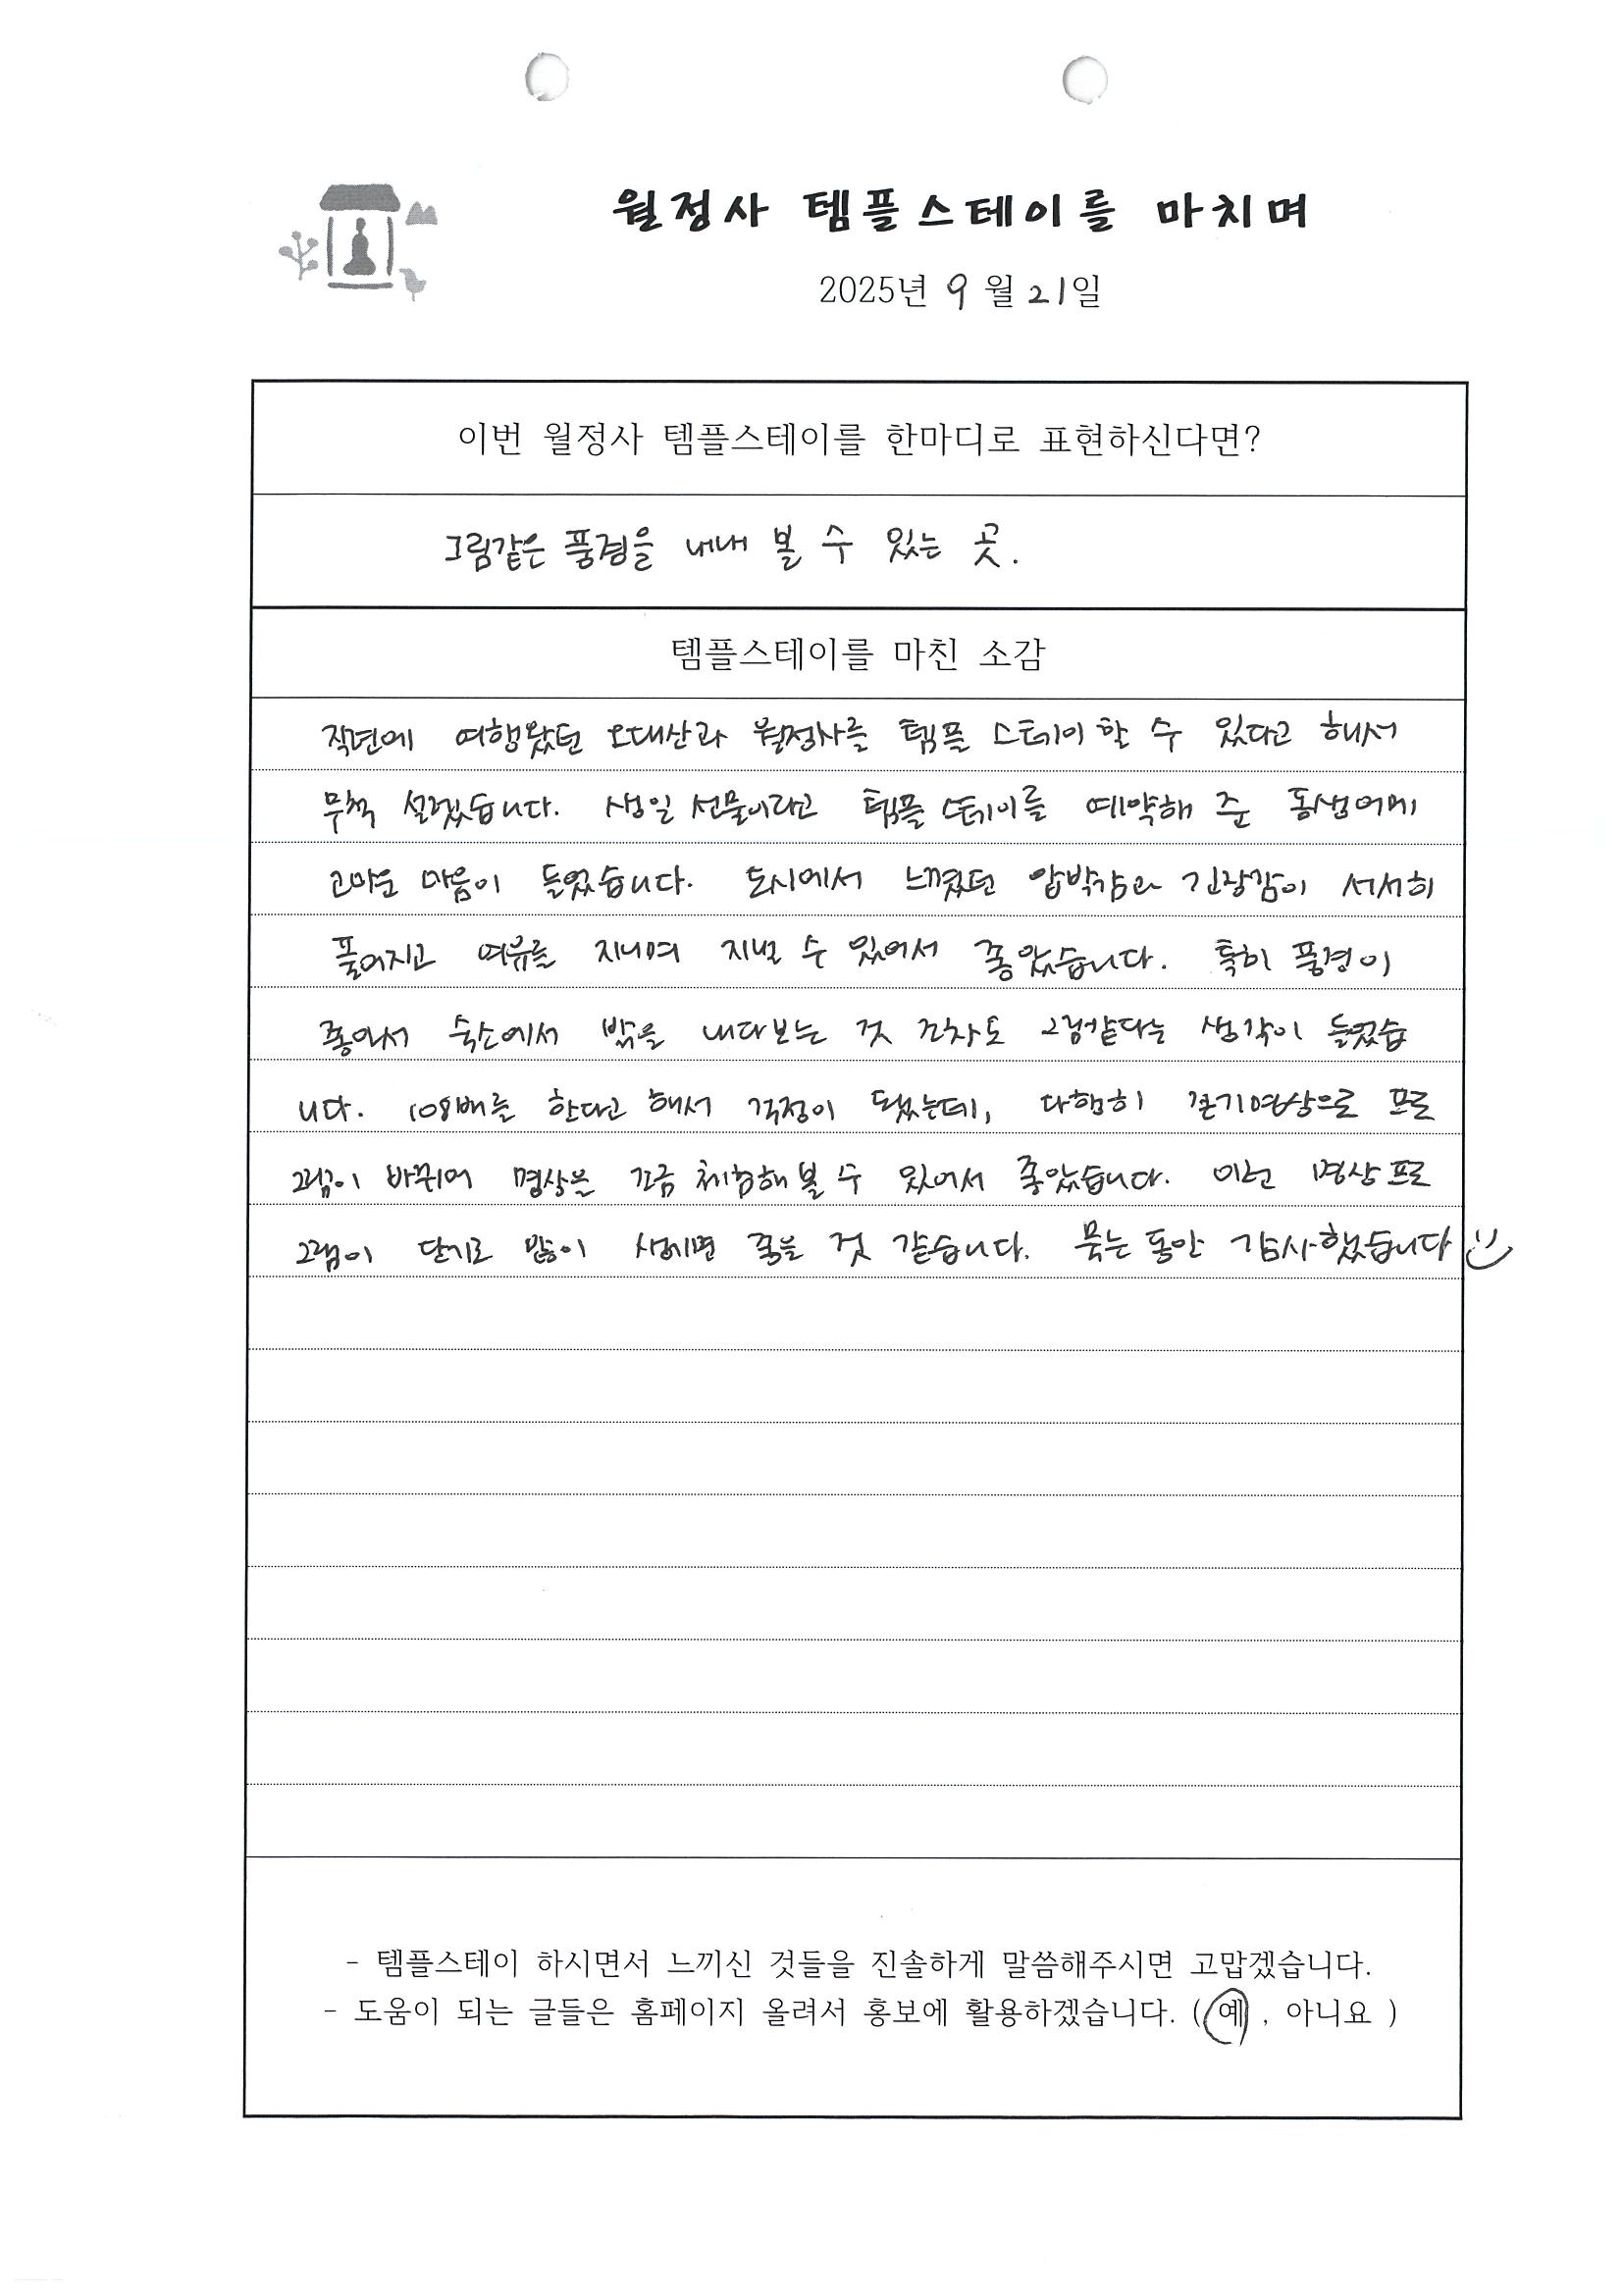 월정사 템플스테이를 마치며
2025년 9월 21일
이번 월정사 템플스테이를 한마디로 표현하신다면?
그림같은 풍경을 내내 볼 수 있는 곳.
템플스테이를 마친 소감
작년에 여행왔던 오대산과 월정사를 템플 스테이 할 수 있다고 해서
무척 설렜습니다. 생일 선물이라고 템플 스테이를 예약해 준 동생에게
고마운 마음이 들었습니다. 도시에서 느꼈던 압박감과 긴장감이 서서히
풀어지고 여유를 지니며 지낼 수 있어서 좋았습니다. 특히 풍경이
좋아서 숙소에서 밖을 내다보는 것 조차도 그림같다는 생각이 들었습
니다. 108배를 한다고 해서 걱정이 됐는데, 다행히 걷기명상으로 프로
그램이 바뀌어 명상을 조금 체험해 볼 수 있어서 좋았습니다. 이런 명상 프로
그램이 단기로 많이 생기면 좋을 것 같습니다. 묵는 동안 감사했습니다
- 템플스테이 하시면서 느끼신 것들을 진솔하게 말씀해주시면 고맙겠습니다.
- 도움이 되는 글들은 홈페이지 올려서 홍보에 활용하겠습니다. ( 예 , 아니요 )